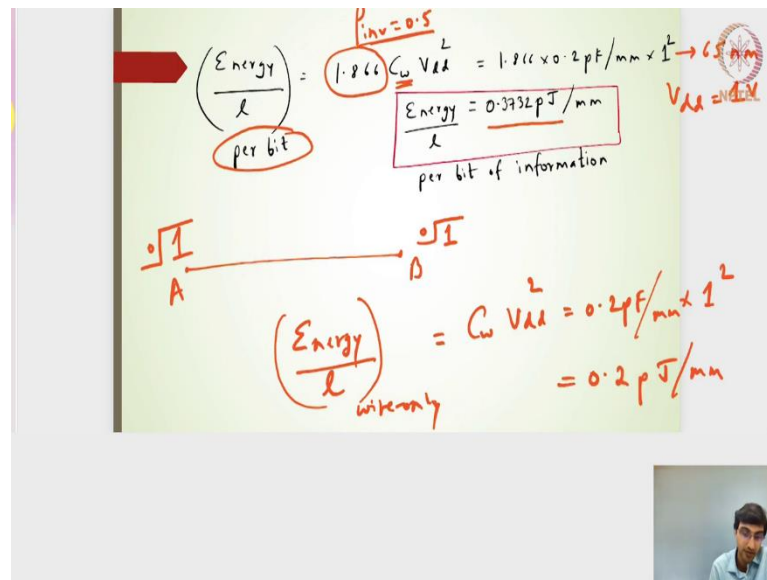 P_inv = 0.5
(Energy / l) = 1.866 C_w V_dd^2 = 1.866 x 0.2 pF/mm x 1^2 → 65 nm
per bit
V_dd = 1V
NPTEL
Energy / l = 0.3732 pJ/mm
per bit of information
0 1 0 1
A B
(Energy / l) wire-only = C_w V_dd^2 = 0.2 pF/mm x 1^2
= 0.2 pJ/mm